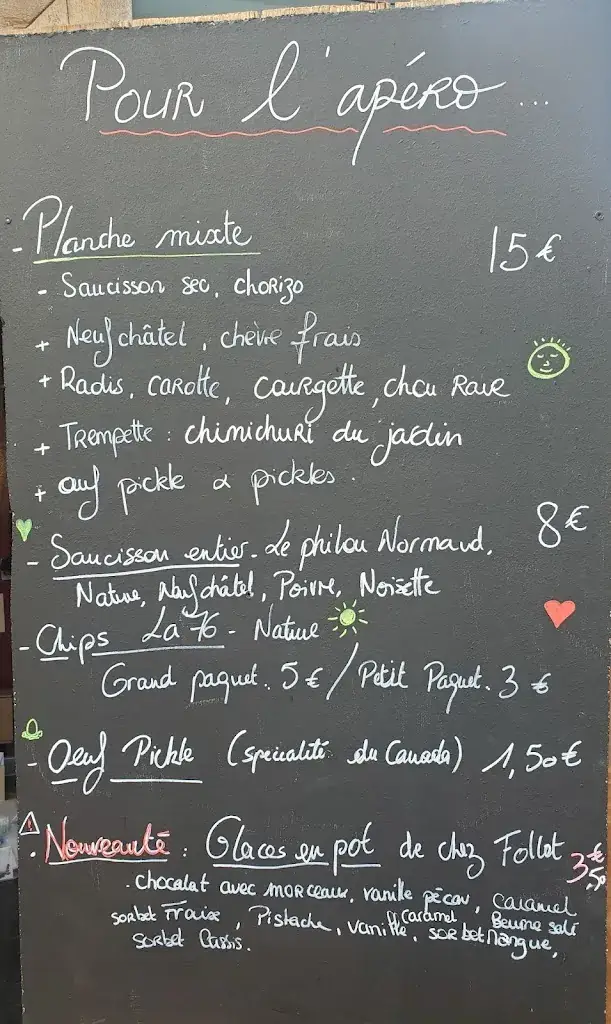 Pour l'apéro...
- Planche mixte 15€
- Saucisson sec, chorizo
+ Neufchâtel, chèvre frais
+ Radis, carotte, courgette, chou rave
+ Trempette : chimichuri du jardin
+ œuf pickle & pickles.
- Saucisson entier - Le philou Normand, 8€
Nature, Neufchâtel, Poivre, Noisette
- Chips La 76 - Nature
Grand paquet. 5€ / Petit Paquet. 3€
- Oeuf Pickle (spécialité du Canada) 1,50€
. Nouveauté : Glaces en pot de chez Follet 3€50
. chocolat avec morceaux, vanille pécan, caramel
Beurre salé
sorbet Fraise, Pistache, vanille caramel, sorbet Mangue,
sorbet Cassis.